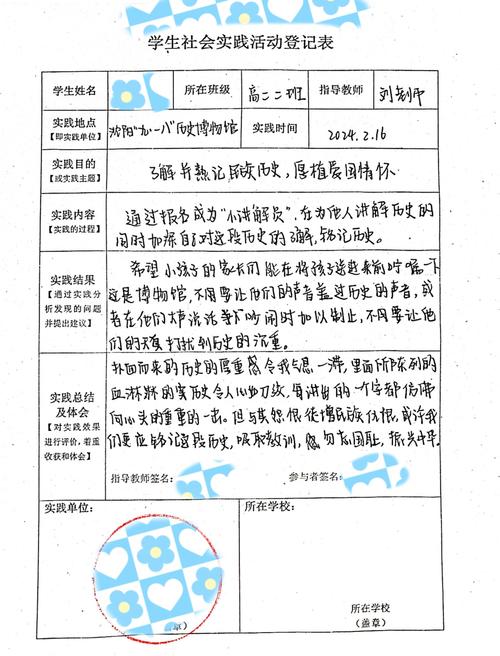 学生社会实践活动登记表
学生姓名 所在班级 高二二班 指导教师 刘老师
实践地点
【即实践单位】 沈阳"九·一八"历史博物馆 实践时间 2024.2.16
实践目的
【或实践主题】 了解并熟记民族历史，厚植爱国情怀
实践内容
【实践的过程】
通过报名成为"小讲解员"，在为他人讲解历史的
同时加深自己对这段历史的了解，铭记历史。
实践结果
【通过实践分
析发现的问题
并提出建议】
希望小孩子的家长们能在将孩子送进来前叮嘱一下
这是博物馆，不要让他们的声音盖过历史的声音，或
者在他们大声说话等下时加以制止，不要让他
们的天真打扰到历史的沉重。
实践总结
及体会
【对实践效果
进行评价，着重
收获和体会】
扑面而来的历史的厚重感令我气息一滞，里面所陈列的
血淋淋的实历史令人心如刀绞，每讲出的一个字都仿佛
向心头的重重的一击。但与其怨恨徒增民族仇恨，或许我
们更应铭记这段历史，吸取教训，勿忘国耻，振兴中华。
指导教师签名： 参与者签名：
实践单位： 所在学校：
章） 所在学校
（盖章）